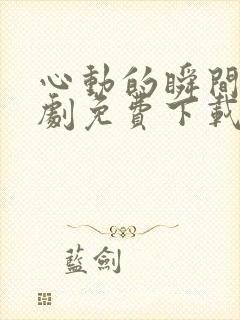 心動的瞬間
劇免費下載
藍劍